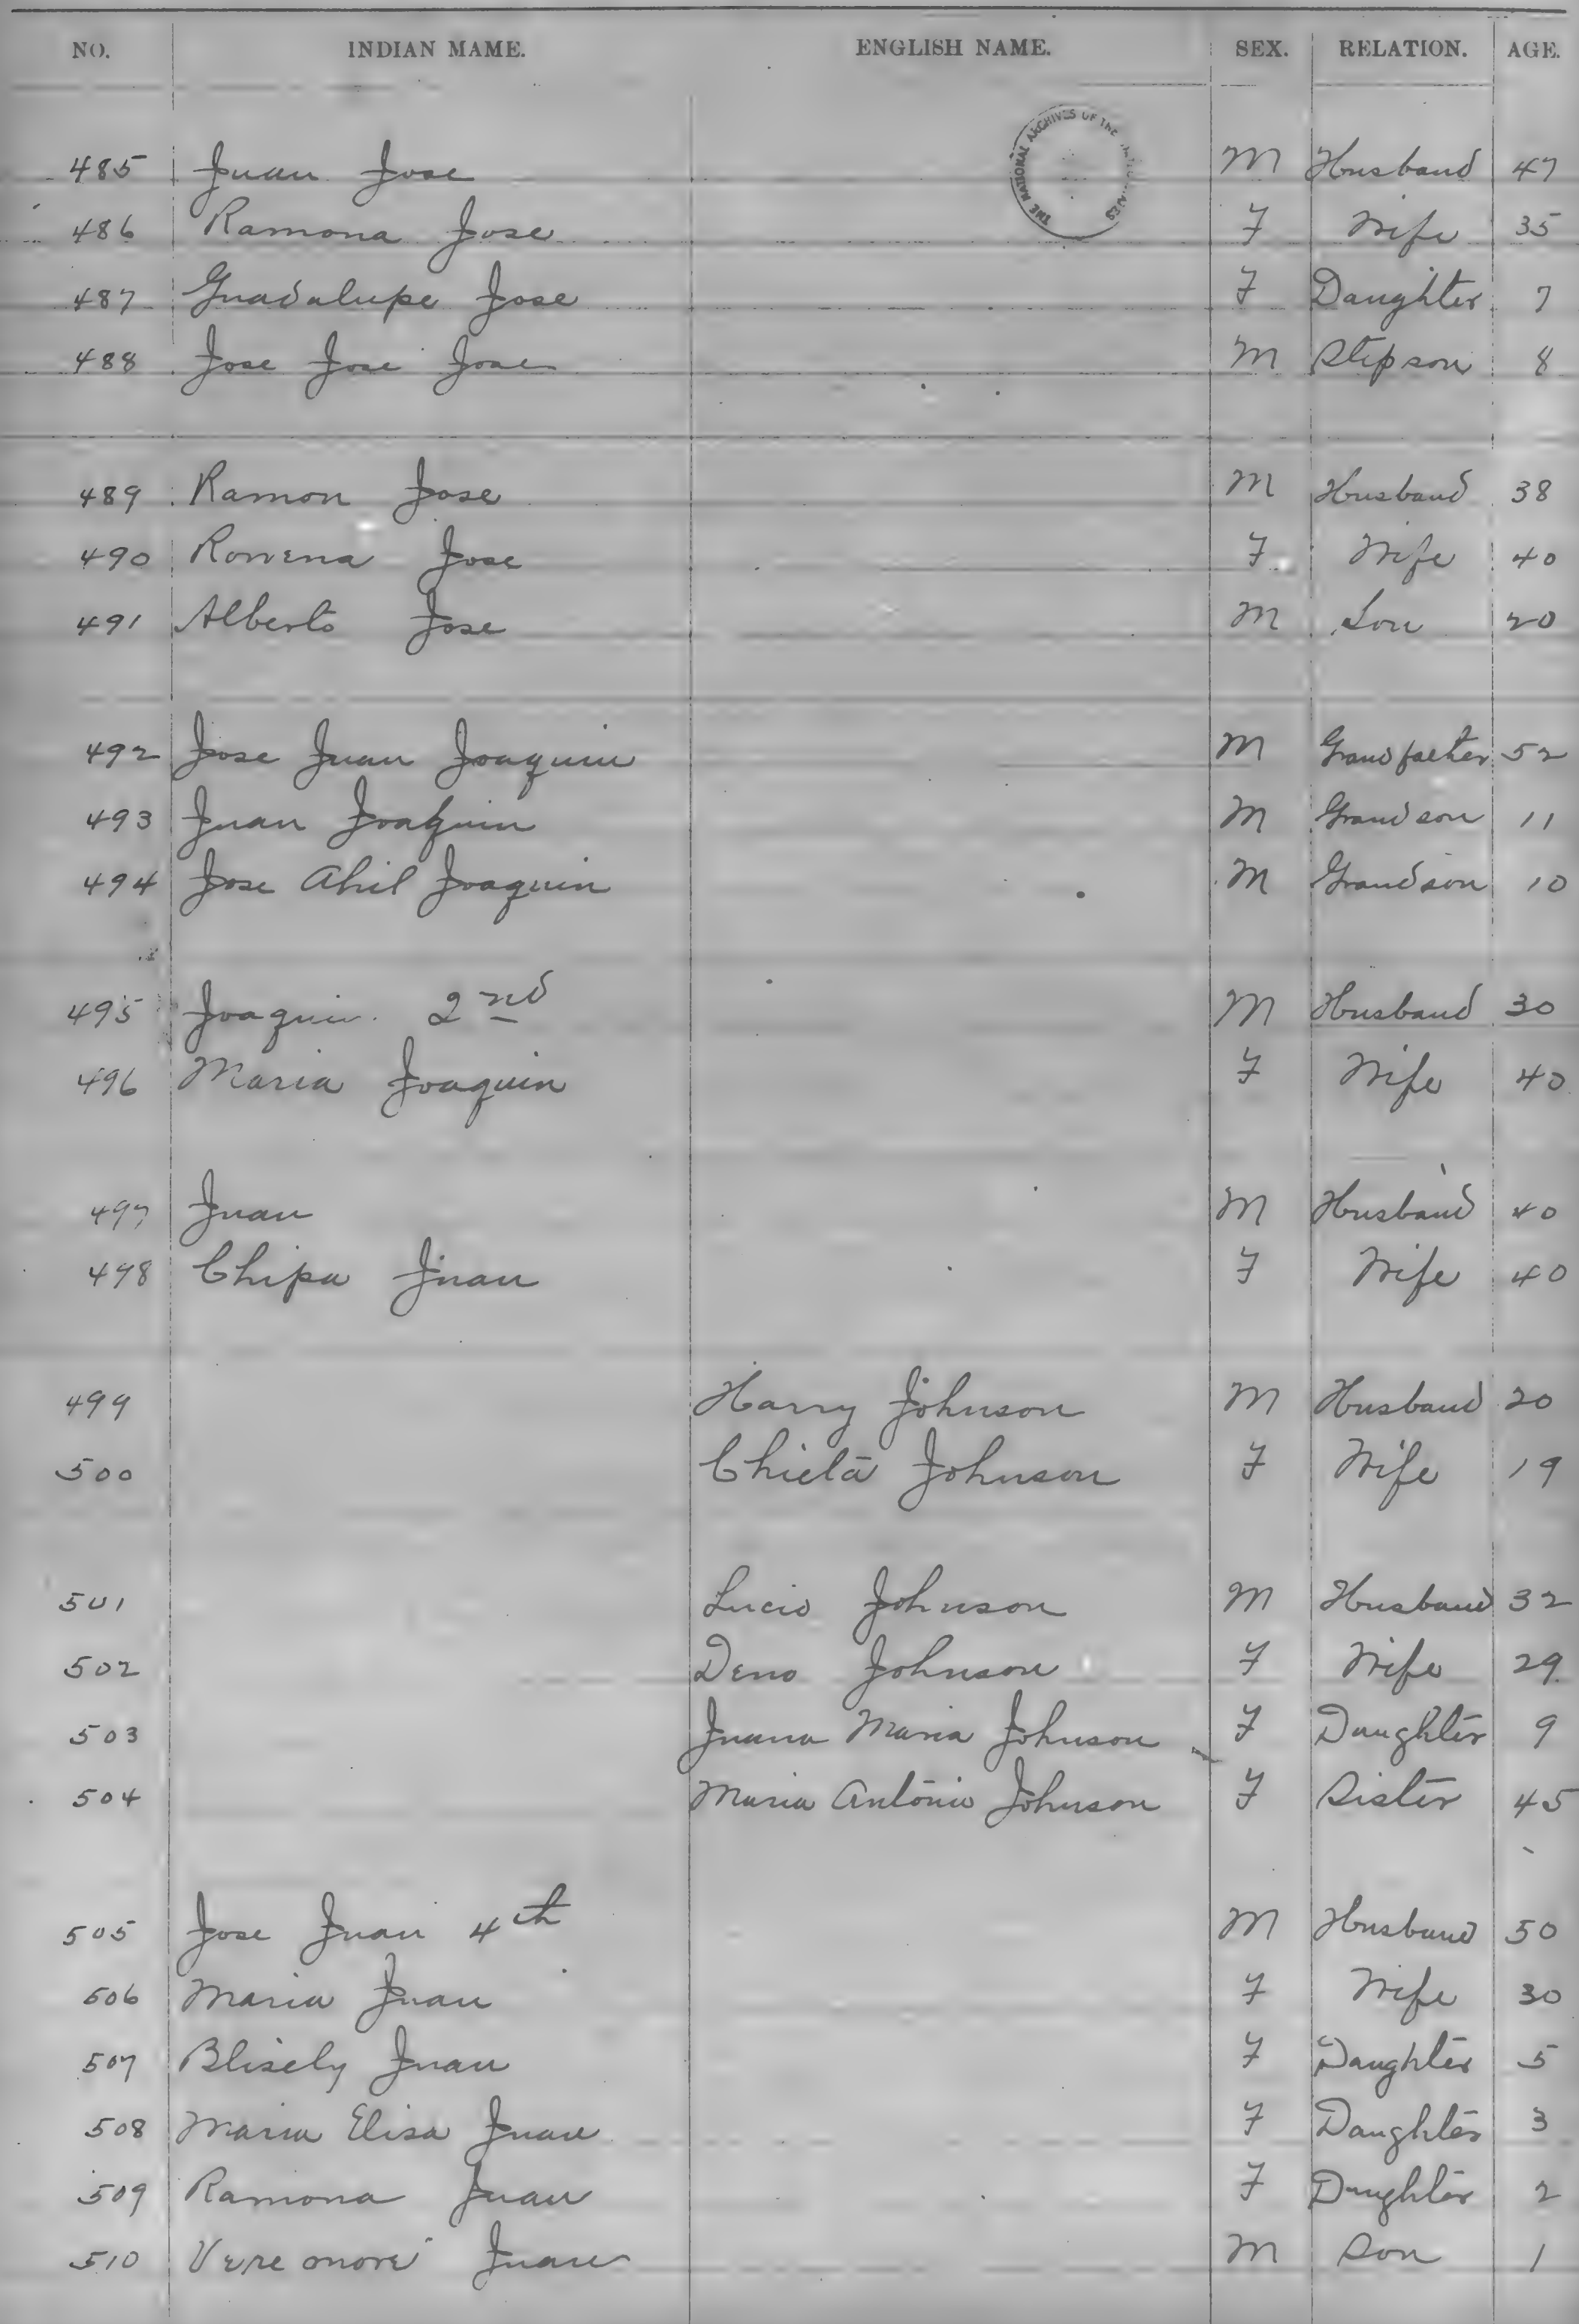 NO. INDIAN MAME. ENGLISH NAME. SEX. RELATION. AGE.
THE NATIONAL ARCHIVES OF THE
485 Juan Jose M Husband 47
486 Ramona Jose F Wife 35
487 Guadalupe Jose F Daughter 7
488 Jose Jose Jose M Stepson 8
489 Ramon Jose M Husband 38
490 Rowena Jose F Wife 40
491 Alberto Jose M Son 20
492 Jose Juan Joaquin M Grandfather 52
493 Juan Joaquin M Grandson 11
494 Jose Ahil Joaquin M Grandson 10
495 Joaquin 2nd M Husband 30
496 Maria Joaquin F Wife 40
497 Juan M Husband 40
498 Chipa Juan F Wife 40
499 Harry Johnson M Husband 20
500 Chieta Johnson F Wife 19
501 Lucio Johnson M Husband 32
502 Deno Johnson F Wife 29
503 Juana Maria Johnson F Daughter 9
504 Maria Antonio Johnson F Sister 45
505 Jose Juan 4th M Husband 50
506 Maria Juan F Wife 30
507 Blisely Juan F Daughter 5
508 Maria Elisa Juan F Daughter 3
509 Ramona Juan F Daughter 2
510 Juan M Son 1